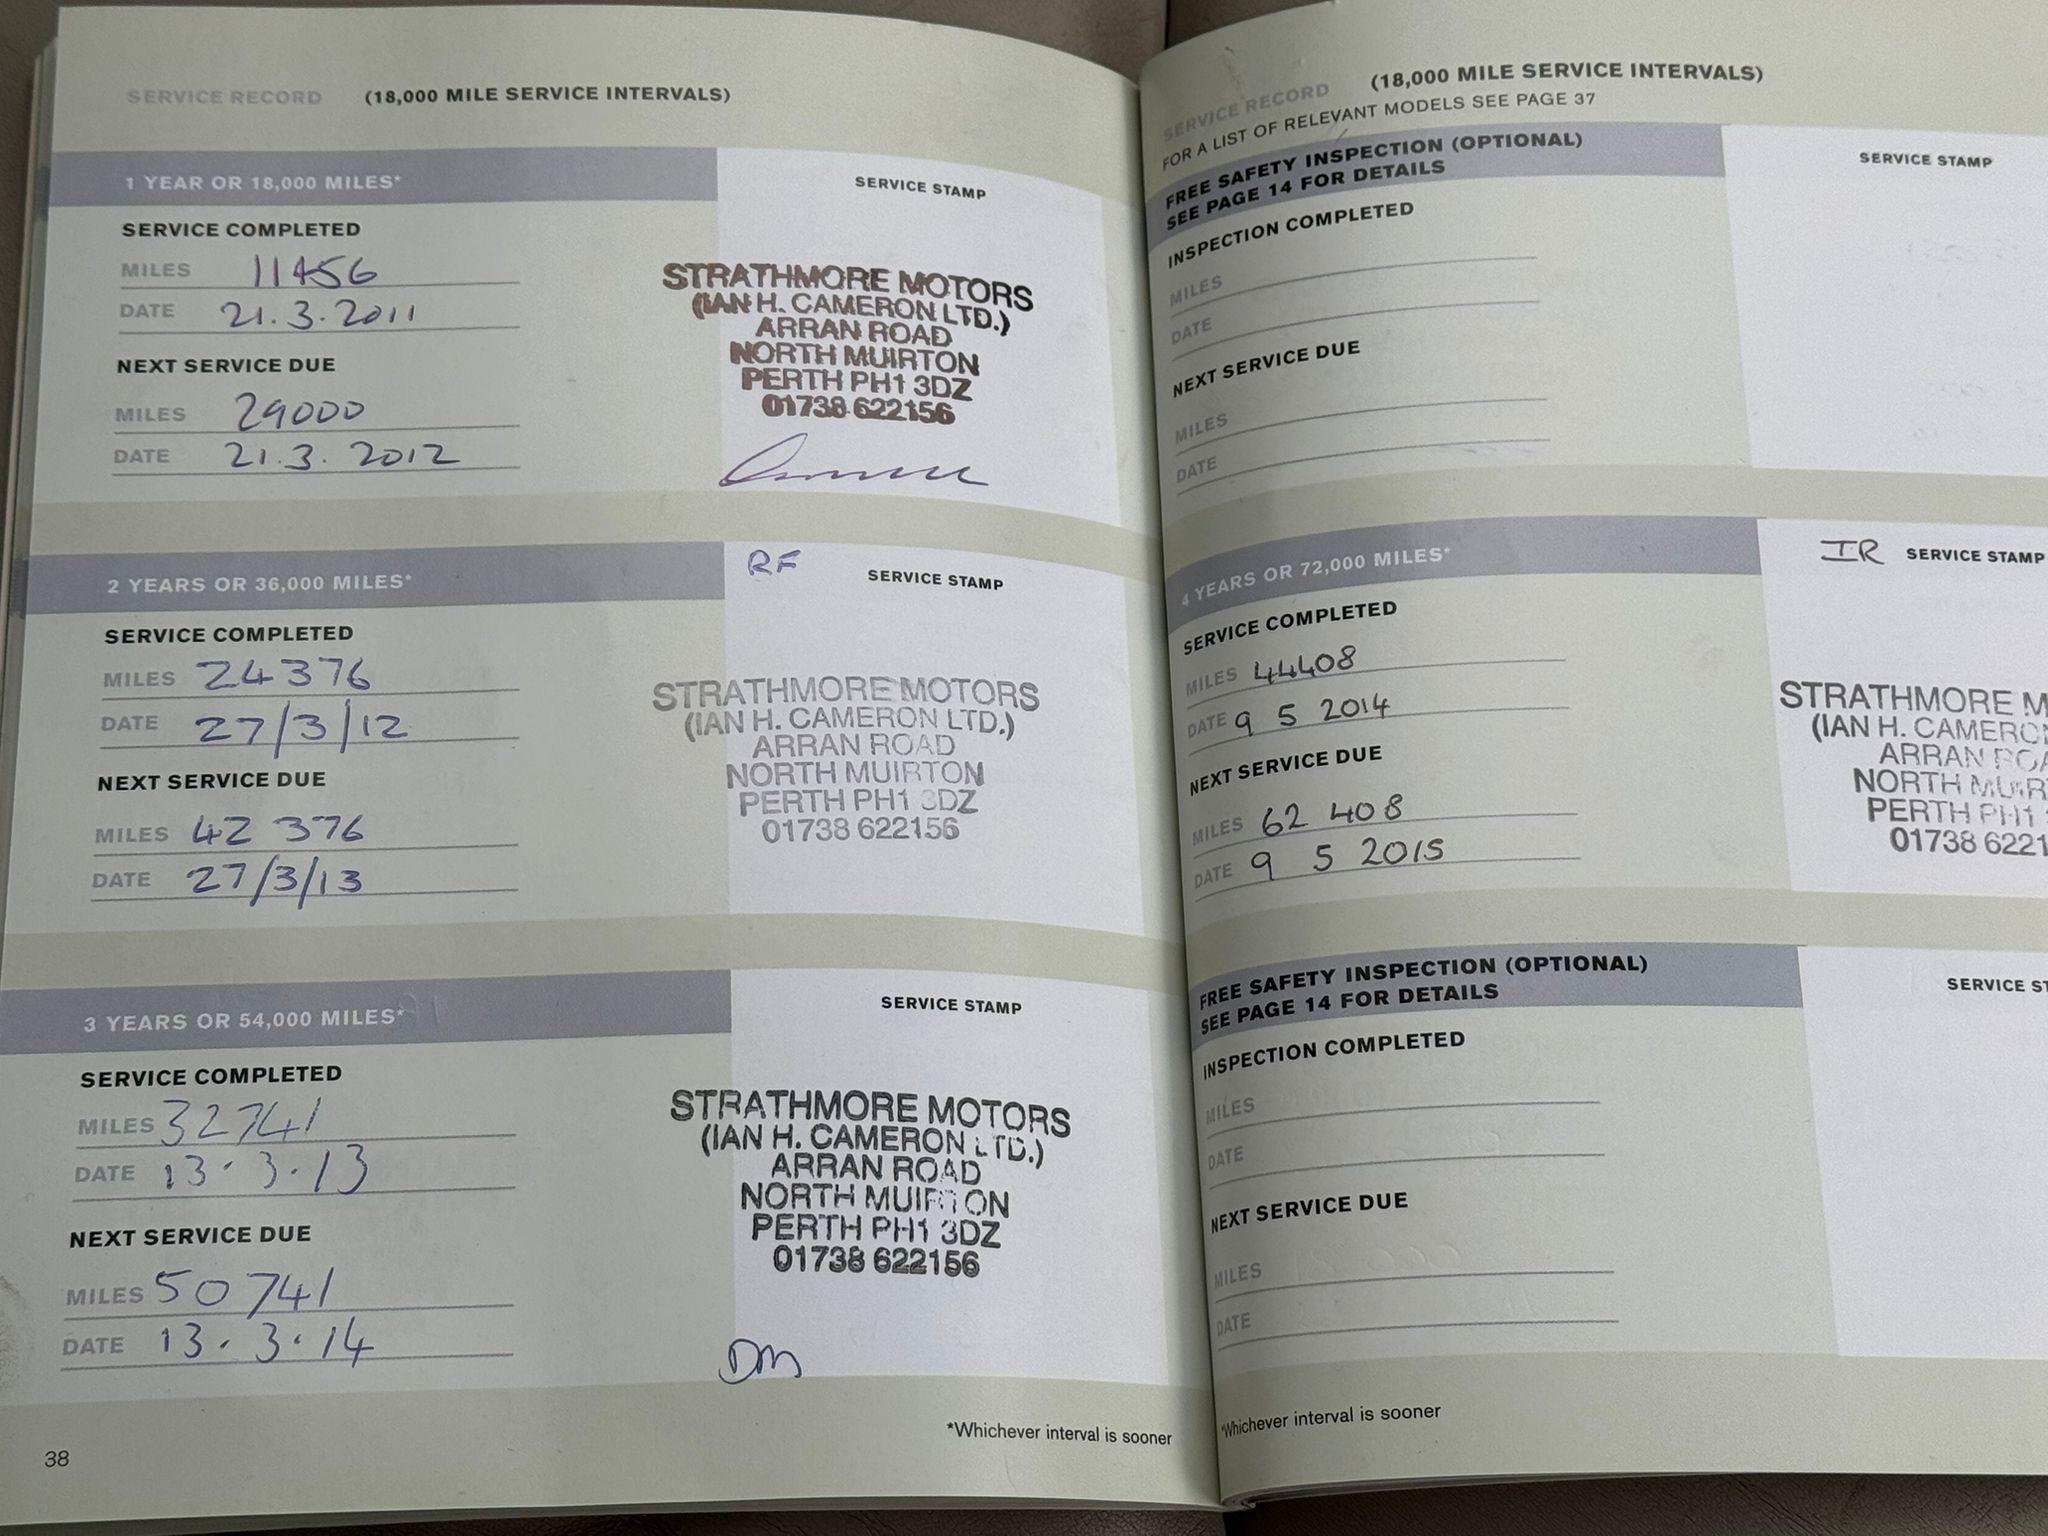 SERVICE RECORD (18,000 MILE SERVICE INTERVALS)
1 YEAR OR 18,000 MILES*
SERVICE STAMP
SERVICE COMPLETED
MILES 11456
DATE 21.3.2011
NEXT SERVICE DUE
MILES 29000
DATE 21.3.2012
STRATHMORE MOTORS
(IAN H. CAMERON LTD.)
ARRAN ROAD
NORTH MUIRTON
PERTH PH1 3DZ
01738 622156
2 YEARS OR 36,000 MILES*
RF SERVICE STAMP
SERVICE COMPLETED
MILES 24376
DATE 27/3/12
NEXT SERVICE DUE
MILES 42 376
DATE 27/3/13
STRATHMORE MOTORS
(IAN H. CAMERON LTD.)
ARRAN ROAD
NORTH MUIRTON
PERTH PH1 3DZ
01738 622156
3 YEARS OR 54,000 MILES*
SERVICE STAMP
SERVICE COMPLETED
MILES 32741
DATE 13.3.13
NEXT SERVICE DUE
MILES 50741
DATE 13.3.14
STRATHMORE MOTORS
(IAN H. CAMERON LTD.)
ARRAN ROAD
NORTH MUIRTON
PERTH PH1 3DZ
01738 622156
DM
*Whichever interval is sooner
38
SERVICE RECORD (18,000 MILE SERVICE INTERVALS)
FOR A LIST OF RELEVANT MODELS SEE PAGE 37
FREE SAFETY INSPECTION (OPTIONAL)
SEE PAGE 14 FOR DETAILS
SERVICE STAMP
INSPECTION COMPLETED
MILES
DATE
NEXT SERVICE DUE
MILES
DATE
4 YEARS OR 72,000 MILES*
IR SERVICE STAMP
SERVICE COMPLETED
MILES 44408
DATE 9 5 2014
NEXT SERVICE DUE
MILES 62 408
DATE 9 5 2015
STRATHMORE M
(IAN H. CAMERO
ARRAN ROA
NORTH MUIR
PERTH PH1
01738 6221
FREE SAFETY INSPECTION (OPTIONAL)
SEE PAGE 14 FOR DETAILS
SERVICE ST
INSPECTION COMPLETED
MILES
DATE
NEXT SERVICE DUE
MILES
DATE
*Whichever interval is sooner